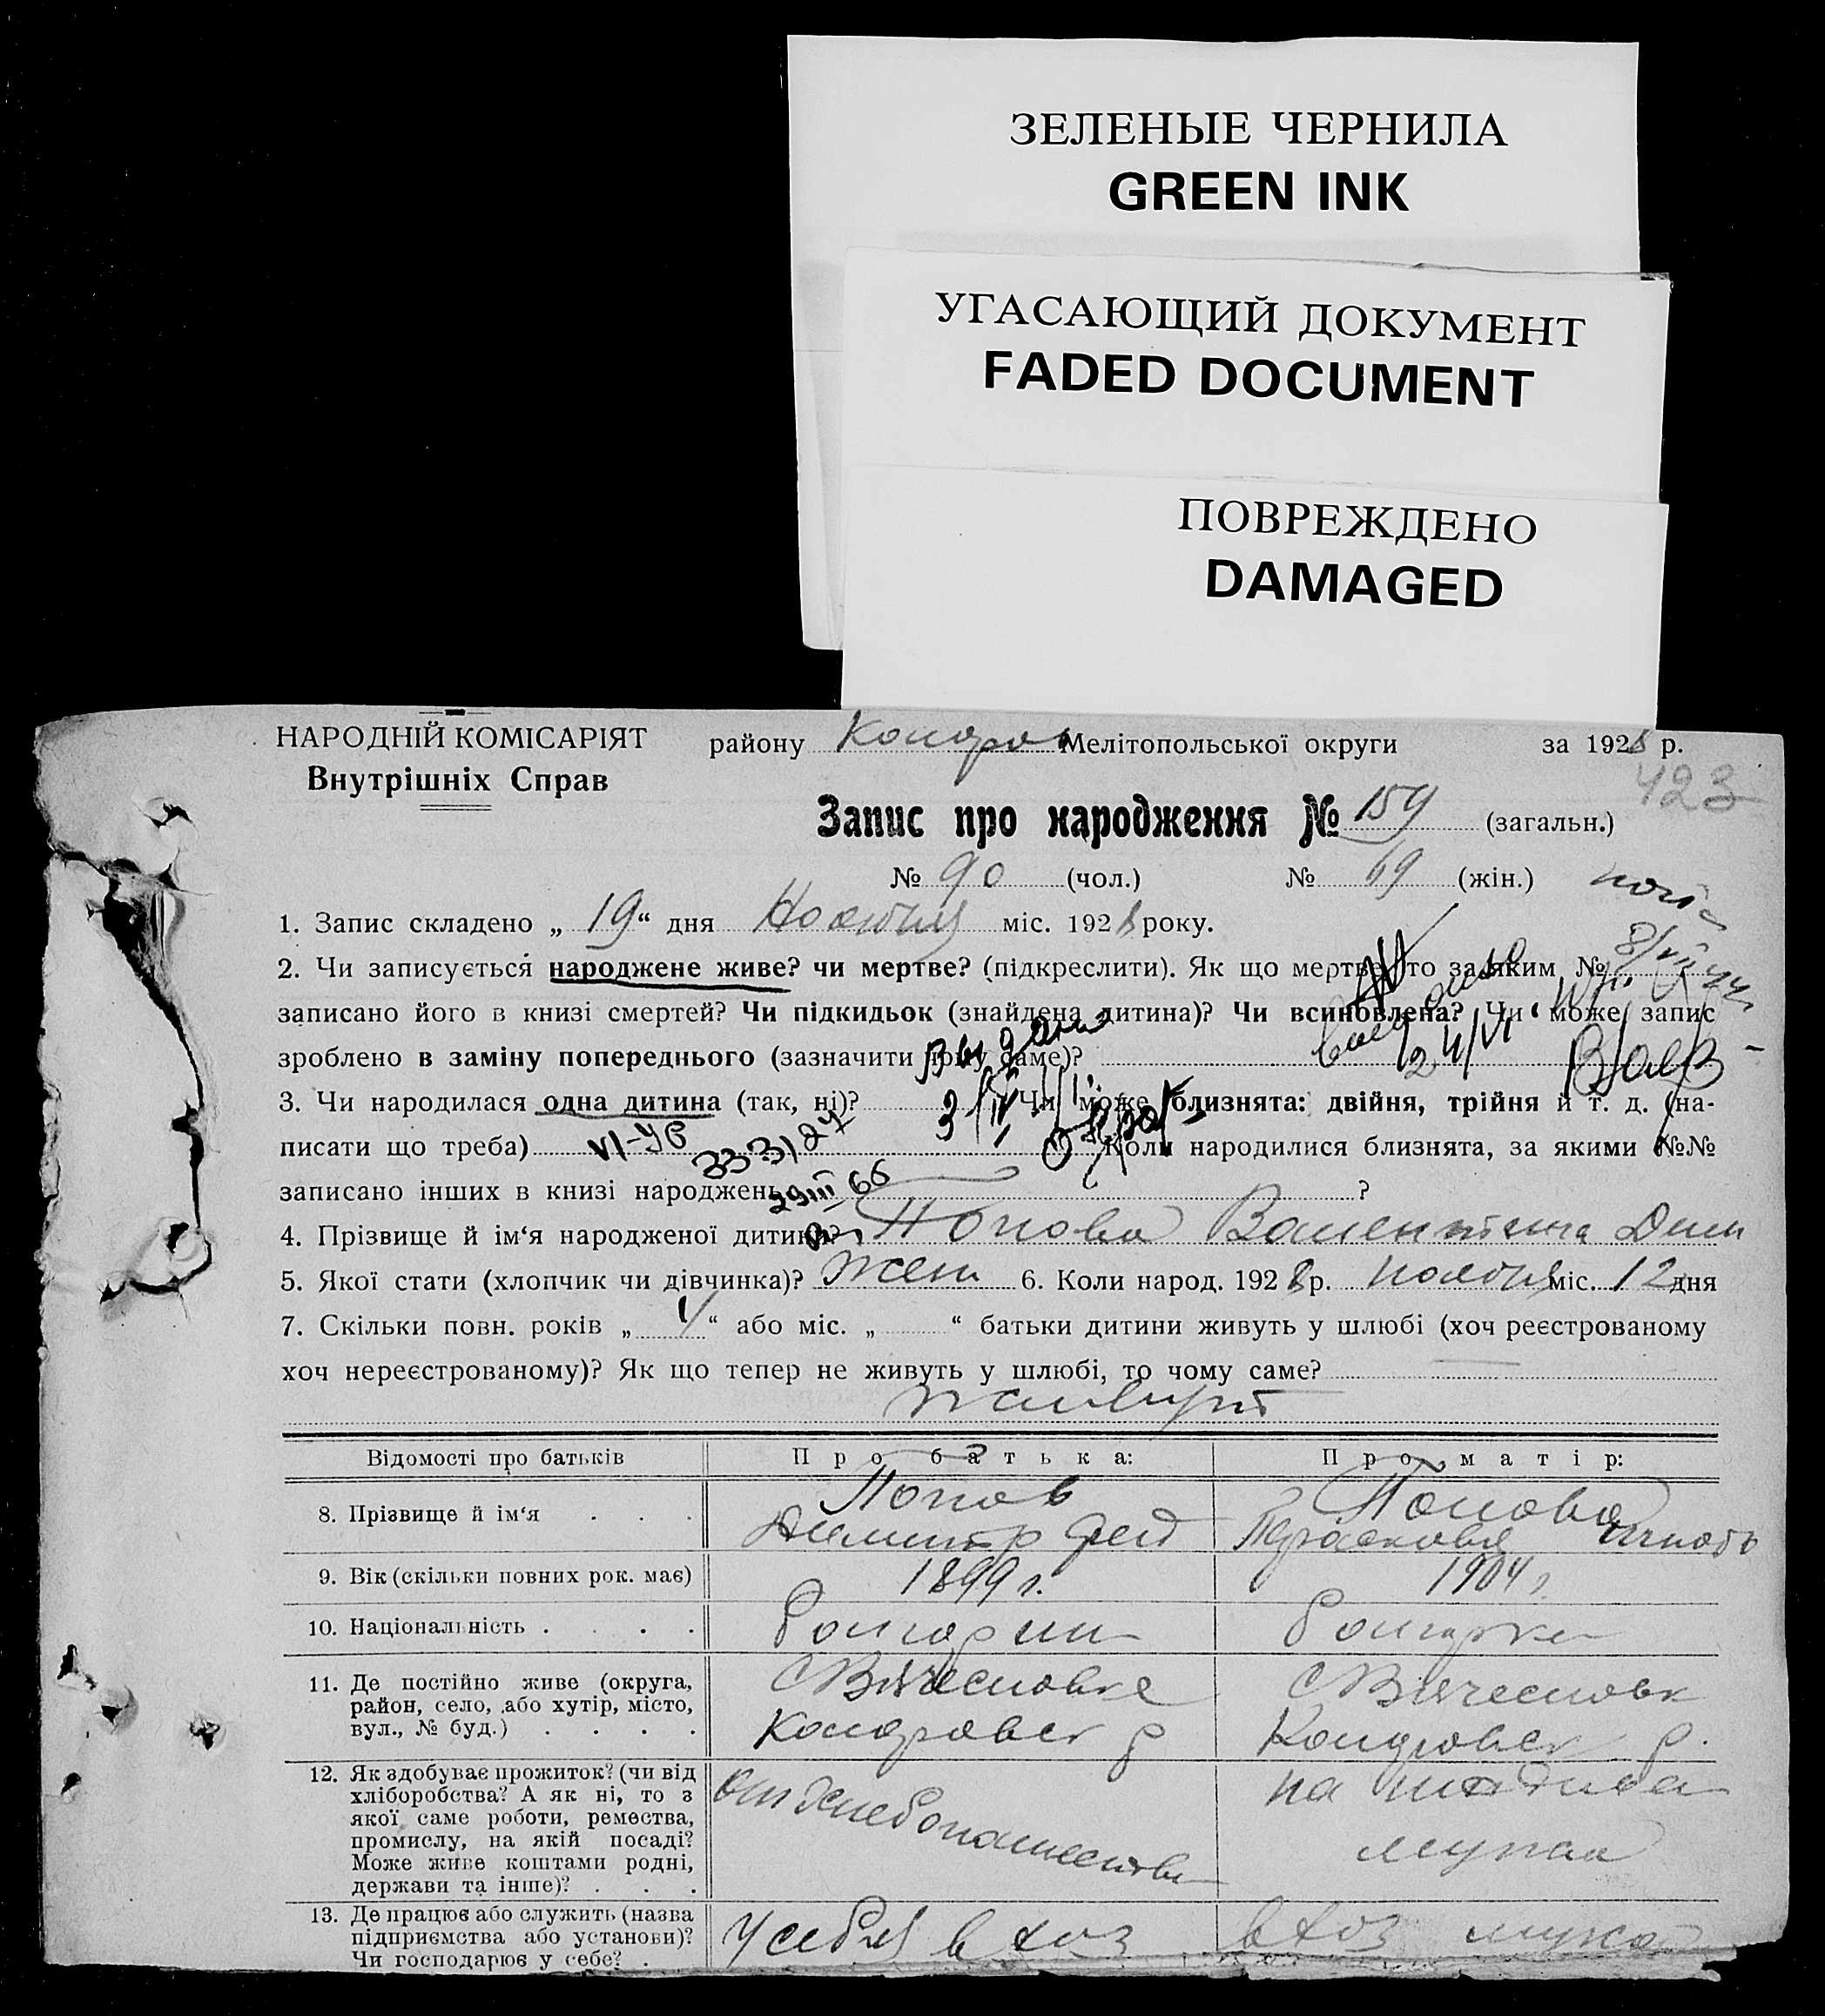 ЗЕЛЕНЫЕ ЧЕРНИЛА
GREEN INK
УГАСАЮЩИЙ ДОКУМЕНТ
FADED DOCUMENT
ПОВРЕЖДЕНО
DAMAGED
НАРОДНІЙ КОМІСАРІЯТ району Мелітопольської округи за 1928 р.
Внутрішніх Справ
423
Запис про народження № 159 (загальн.)
№ 90 (чол.) № 69 (жін.)
1. Запис складено „ 19 “ дня Ноября міс. 1928 року.
2. Чи записується народжене живе? чи мертве? (підкреслити). Як що мертве, то за яким №
записано його в книзі смертей? Чи підкидьок (знайдена дитина)? Чи всиновлена? Чи може запис
зроблено в заміну попереднього (зазначити чому саме)?
3. Чи народилася одна дитина (так, ні)? Чи може близнята: двійня, трійня й т. д. (на-
писати що треба) Коли народилися близнята, за якими №№
записано інших в книзі народжень ?
4. Прізвище й ім‘я народженої дитини? Попова Валентина Дми
5. Якої стати (хлопчик чи дівчинка)? Жен 6. Коли народ. 1928 р. ноября міс. 12 дня
7. Скільки повн. років „ “ або міс. „ “ батьки дитини живуть у шлюбі (хоч реєстрованому
хоч нереєстрованому)? Як що тепер не живуть у шлюбі, то чому саме?
живут
Відомості про батьків Про батька: Про матір:
8. Прізвище й ім‘я . . . Попов Попова
Димитр Фед Парасковья Игнать
9. Вік (скільки повних рок. має) 1899 г. 1904 г.
10. Національність . . . . болгарин болгарка
11. Де постійно живе (округа, район, село, або хутір, місто, вул., № буд.) . . . . С Вячесловке С Вячесловк
Колоровск р Колоровск р.
12. Як здобуває прожиток? (чи від хліборобства? А як ні, то з якої саме роботи, ремества, промислу, на якій посаді? Може живе коштами родні, держави та інше)? . . . от хлебопашества на
мужа
13. Де працює або служить (назва підприємства або установи)? Чи господарює у себе? . у себя в хоз в хоз мужа